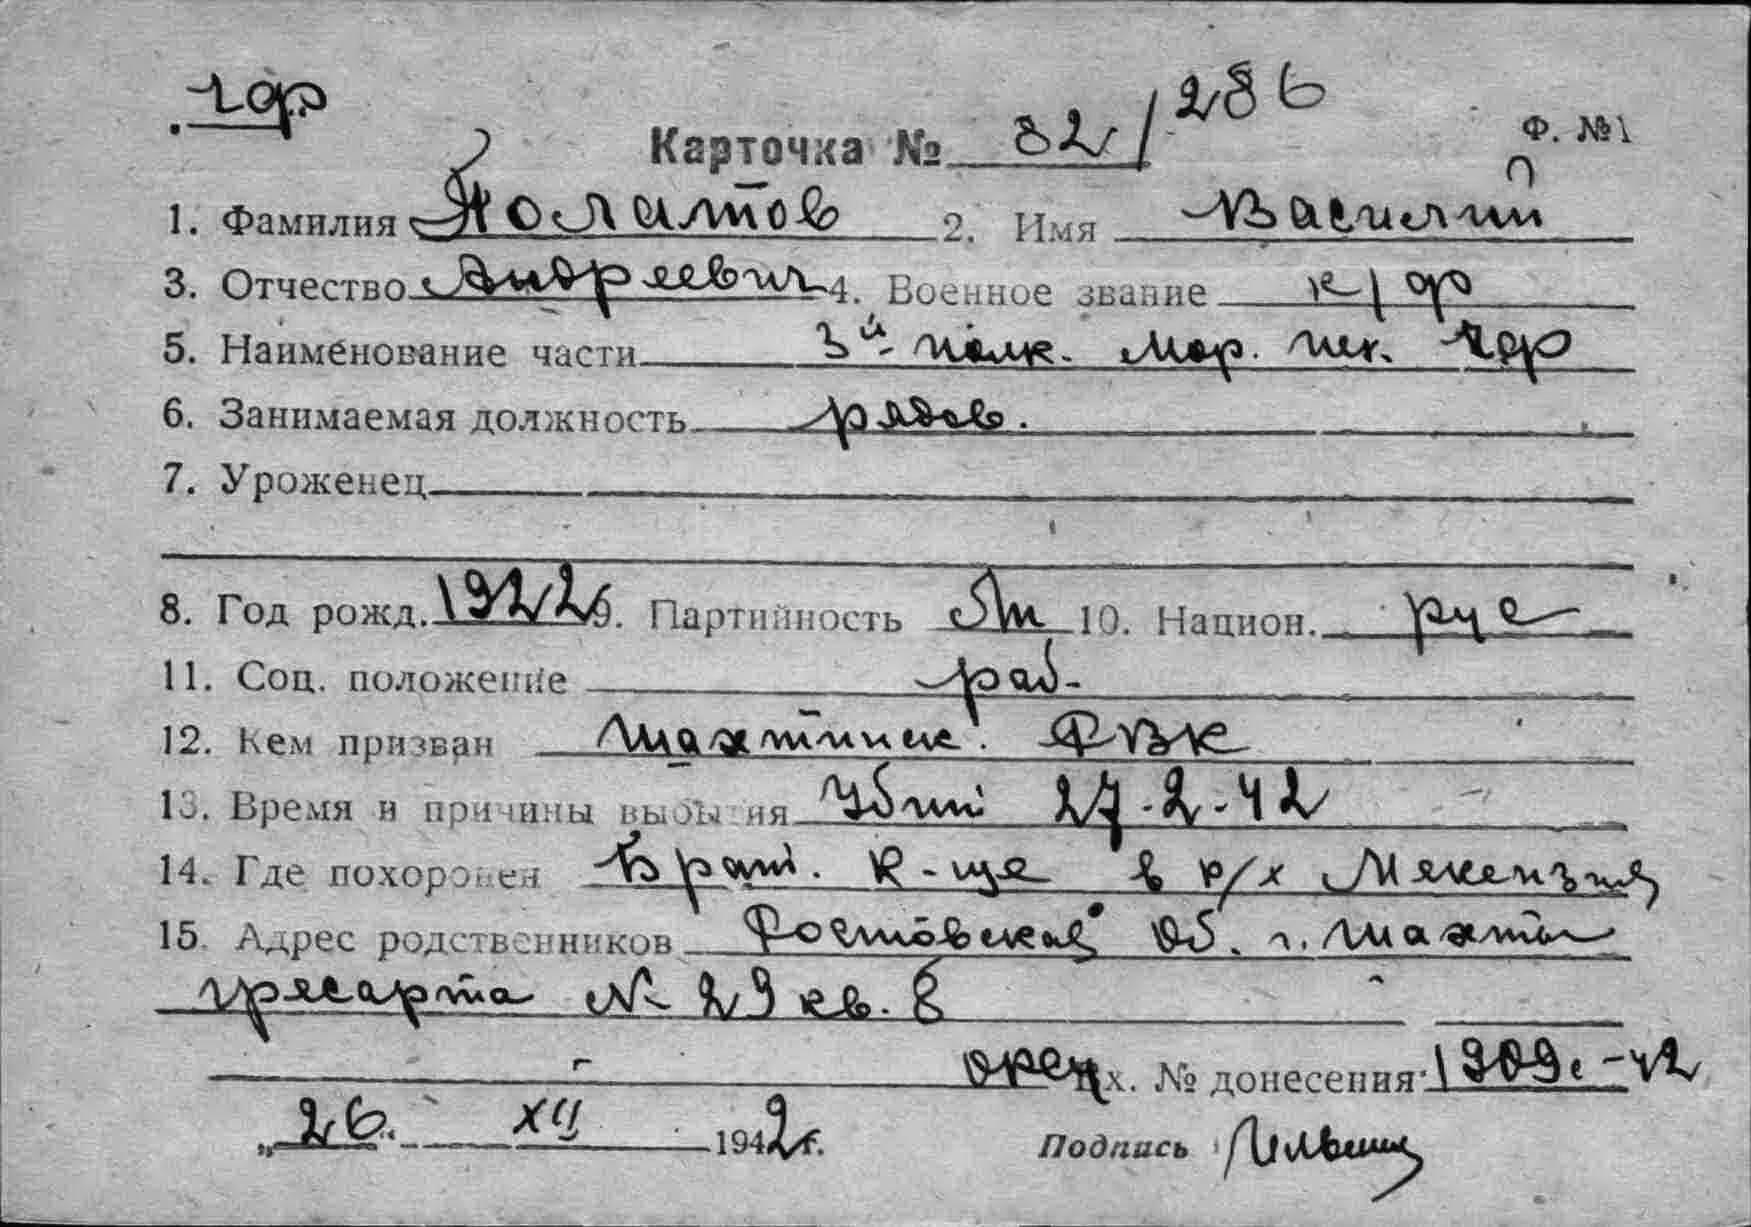 чф
Карточка № 82/286 Ф. №1
1. Фамилия Полатов 2. Имя Василий
3. Отчество Андреевич 4. Военное звание к/ф
5. Наименование части 3й полк. мор. пех. чф
6. Занимаемая должность рядов.
7. Уроженец
8. Год рожд. 1922 9. Партийность 10. Национ. рус
11. Соц. положение раб-
12. Кем призван Шахтинск. РВК
13. Время и причины выбытия Убит 27-2-42
14. Где похоронен Брат. к-ще в р/х Мекензия
15. Адрес родственников Ростовская об. г. Шахты
№ 29 кв. 8
Вх. № донесения 1909с-42
„26“ XII 1942г. Подпись